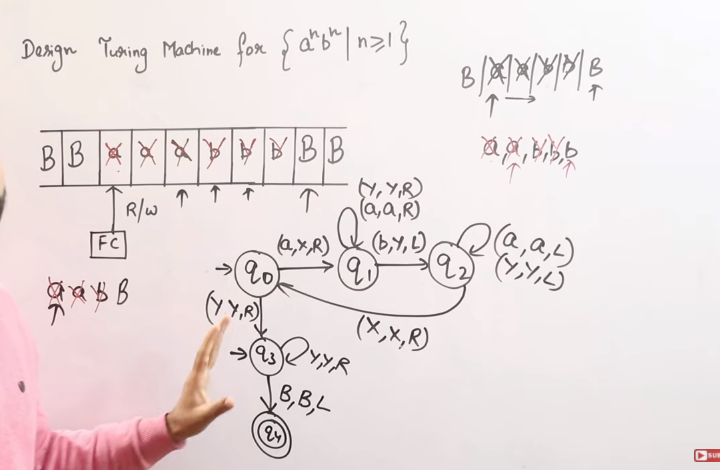 Design Turing Machine for {aⁿbⁿ | n≥1}
B | a | a | b | b | B
B | B | a | a | a | b | b | b | B | B
a, a, b, b, b
R/W
FC
a a b B
(Y, Y, R)
(a, a, R)
(a, X, R)
(b, Y, L)
(a, a, L)
(Y, Y, L)
q0
q1
q2
(X, X, R)
(Y Y, R)
q3
Y, Y, R
B, B, L
q4